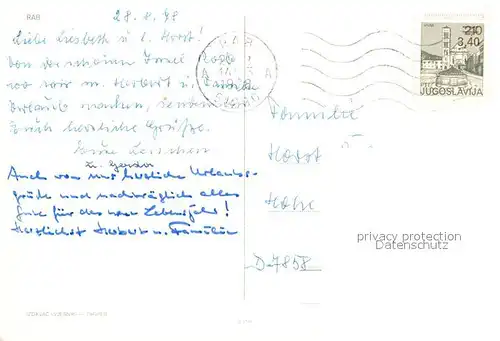 RAB
28.8.78
Liebe Liesbeth u. l. Horst!
Von der schönen Insel Rab
wo wir m. Herbert u. Familie
Urlaub machen, senden
Euch herzliche Grüße.
Eure Lenchen
u.
Auch von uns herzliche Urlaubs-
grüße und nachträglich alles
Gute für das neue Lebensjahr!
Herzlichst Herbert u. Familie
RAB
2.10
3,40
JUGOSLAVIJA
Familie
Horst
D-7858
privacy protection
Datenschutz